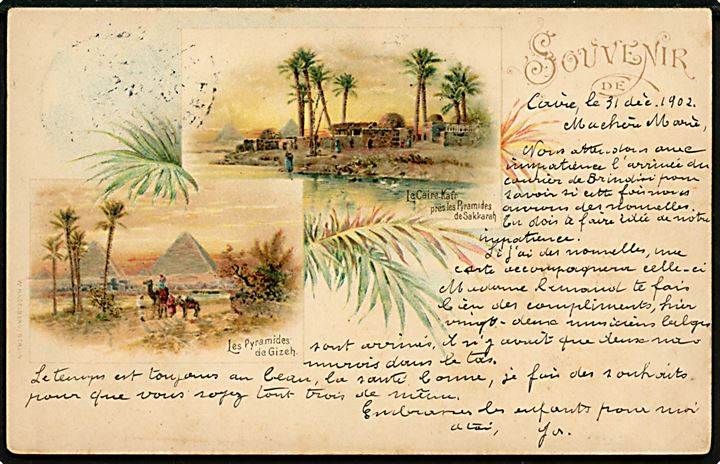 SOUVENIR
DE
Caire, le 31 déc. 1902.
Ma chère Marie,
Nous attendons avec
impatience l'arrivée du
courier de Brindisi pour
savoir si cette fois nous
aurons des nouvelles.
Tu dois te faire idée de notre
impatience.
Si j'ai des nouvelles, une
carte accompagnera celle-ci
Madame te fais
bien des compliments, hier
vingt-deux musiciens belges
sont arrivés, il n'y avait que deux na-
murois dans le tas.
Le temps est toujours au beau, la santé bonne, je fais des souhaits
pour que vous soyez tout trois de même.
Embrasses les enfants pour moi
à toi,
Le Caire. Kafr
près les Pyramides
de Sakkarah
Les Pyramides
de Gizeh.
W. HAGELBERG, BERLIN